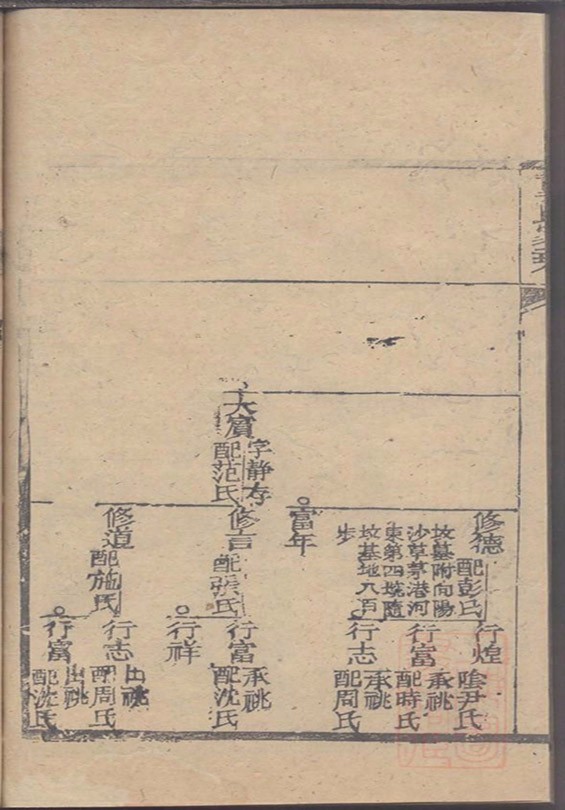 大賓
字靜存
配范氏
修德
配彭氏
坟墓附向陽
沙草茅港河
東第四號隨
坟基地六百
步
富年
修言
配張氏
修道
配施氏
行煌
行富
承祧
配時氏
行志
承祧
配周氏
行富
承祧
配沈氏
行祥
行志
出祧
配周氏
行富
出祧
配沈氏